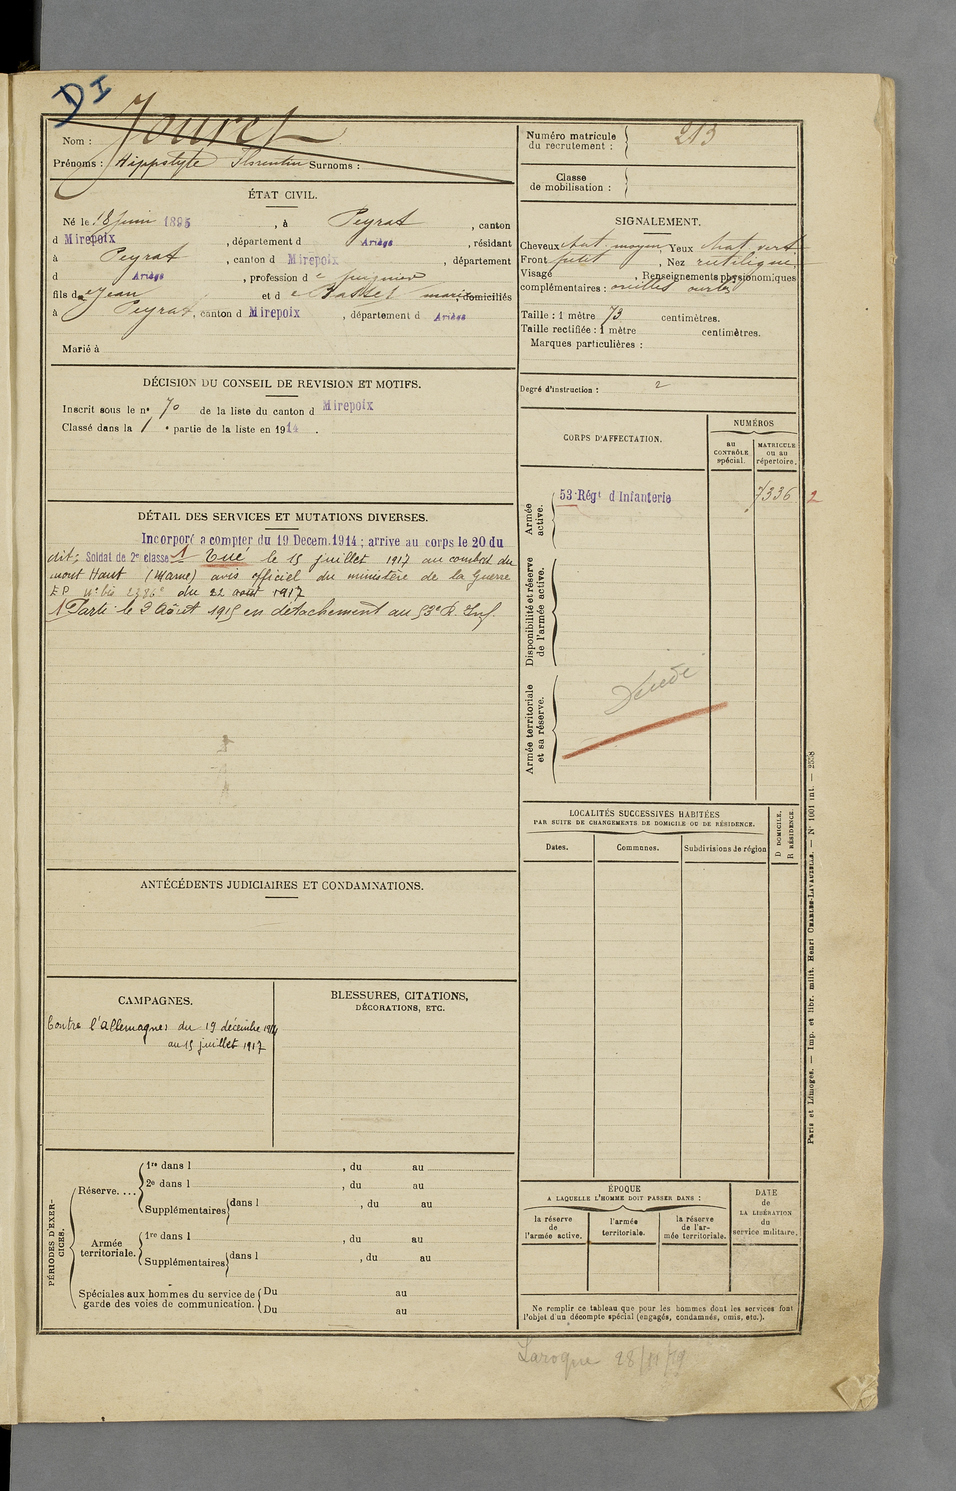 DI
Nom : Jouret
Prénoms : Hippolyte Florentin Surnoms :
Numéro matricule du recrutement : 213
Classe de mobilisation :
ÉTAT CIVIL.
Né le 18 juin 1895, à Peyrat, canton
d Mirepoix, département d Ariège, résidant
à Peyrat, canton d Mirepoix, département
d Ariège, profession de
fils de Jean et de domiciliés
à Peyrat, canton d Mirepoix, département d Ariège
Marié à
SIGNALEMENT.
Cheveux chat. moyen, Yeux chat. vert
Front petit, Nez rectiligne,
Visage , Renseignements physionomiques
complémentaires : oreilles
Taille : 1 mètre 73 centimètres.
Taille rectifiée : 1 mètre centimètres.
Marques particulières :
Degré d'instruction : 2
DÉCISION DU CONSEIL DE REVISION ET MOTIFS.
Inscrit sous le n° 70 de la liste du canton d Mirepoix
Classé dans la 1 e partie de la liste en 1914.
CORPS D'AFFECTATION.
NUMÉROS
au CONTRÔLE spécial.
MATRICULE ou au répertoire.
Armée active.
53 Régt d'Infanterie 7336 2
Disponibilité et réserve de l'armée active.
Armée territoriale et sa réserve.
Décédé
DÉTAIL DES SERVICES ET MUTATIONS DIVERSES.
Incorporé a compter du 19 Décem. 1914; arrive au corps le 20 du
dit; Soldat de 2e classe 1 Tué le 15 juillet 1917 au combat du
mont Haut (Marne) avis officiel du ministère de la Guerre
du 22 août 1917
1 Parti le 2 Août 1915 en détachement au 53e R. Inf.
LOCALITÉS SUCCESSIVES HABITÉES
PAR SUITE DE CHANGEMENTS DE DOMICILE OU DE RÉSIDENCE.
Dates.
Communes.
Subdivisions de région
D DOMICILE.
R RÉSIDENCE.
ANTÉCÉDENTS JUDICIAIRES ET CONDAMNATIONS.
CAMPAGNES.
Contre l'Allemagne du 19 décembre 1914
au 15 juillet 1917
BLESSURES, CITATIONS,
DÉCORATIONS, ETC.
PÉRIODES D'EXERCICES.
Réserve....
1re dans l , du au
2e dans l , du au
Supplémentaires dans l , du au
Armée territoriale.
1re dans l , du au
Supplémentaires dans l , du au
Spéciales aux hommes du service de garde des voies de communication.
Du au
Du au
ÉPOQUE
A LAQUELLE L'HOMME DOIT PASSER DANS :
la réserve de l'armée active.
l'armée territoriale.
la réserve de l'armée territoriale.
DATE de LA LIBÉRATION du service militaire.
Ne remplir ce tableau que pour les hommes dont les services font
l'objet d'un décompte spécial (engagés, condamnés, omis, etc.).
Paris et Limoges. — Imp. et libr. milit. Henri CHARLES-LAVAUZELLE. — N° 1001 int. — 2558
Laroque 28/11/19